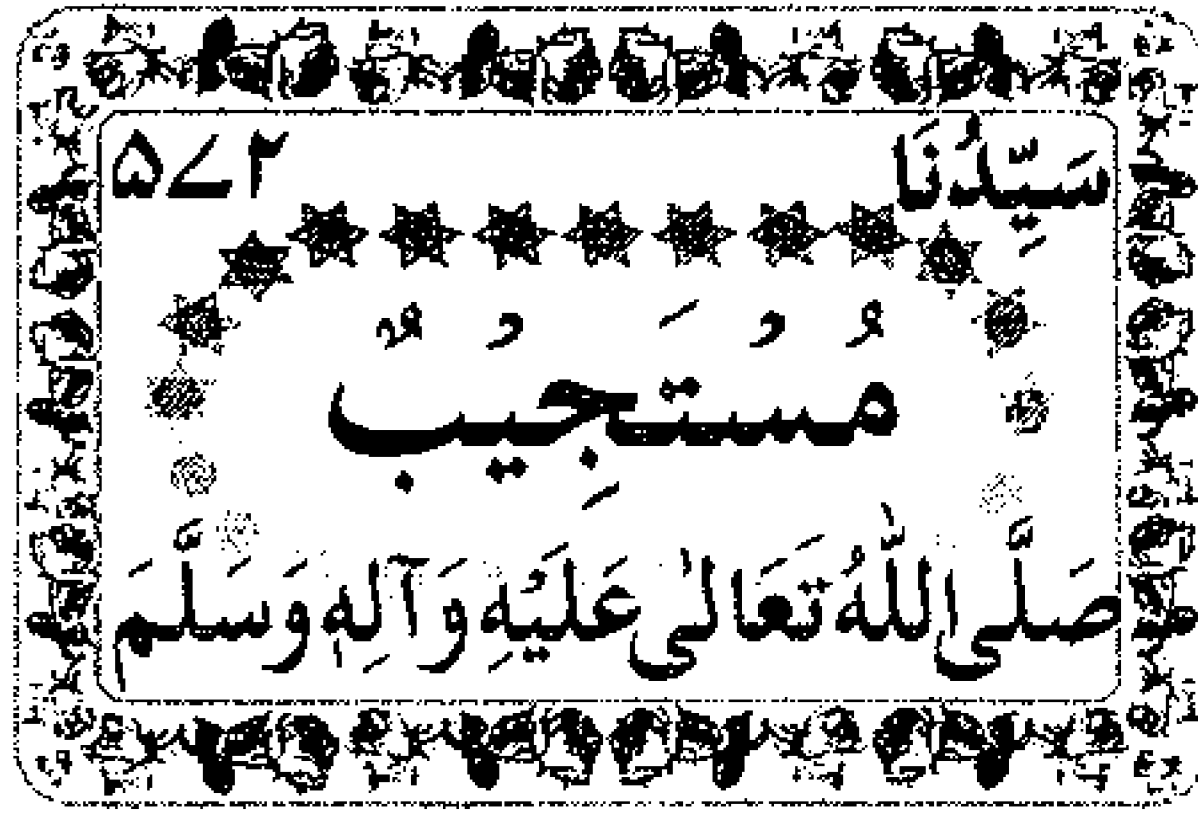 سَيِّدُنَا ۵۷۲
مُسْتَجِيْبٌ
صَلَّى اللّٰهُ تَعَالٰى عَلَيْهِ وَآلِهٖ وَسَلَّمَ